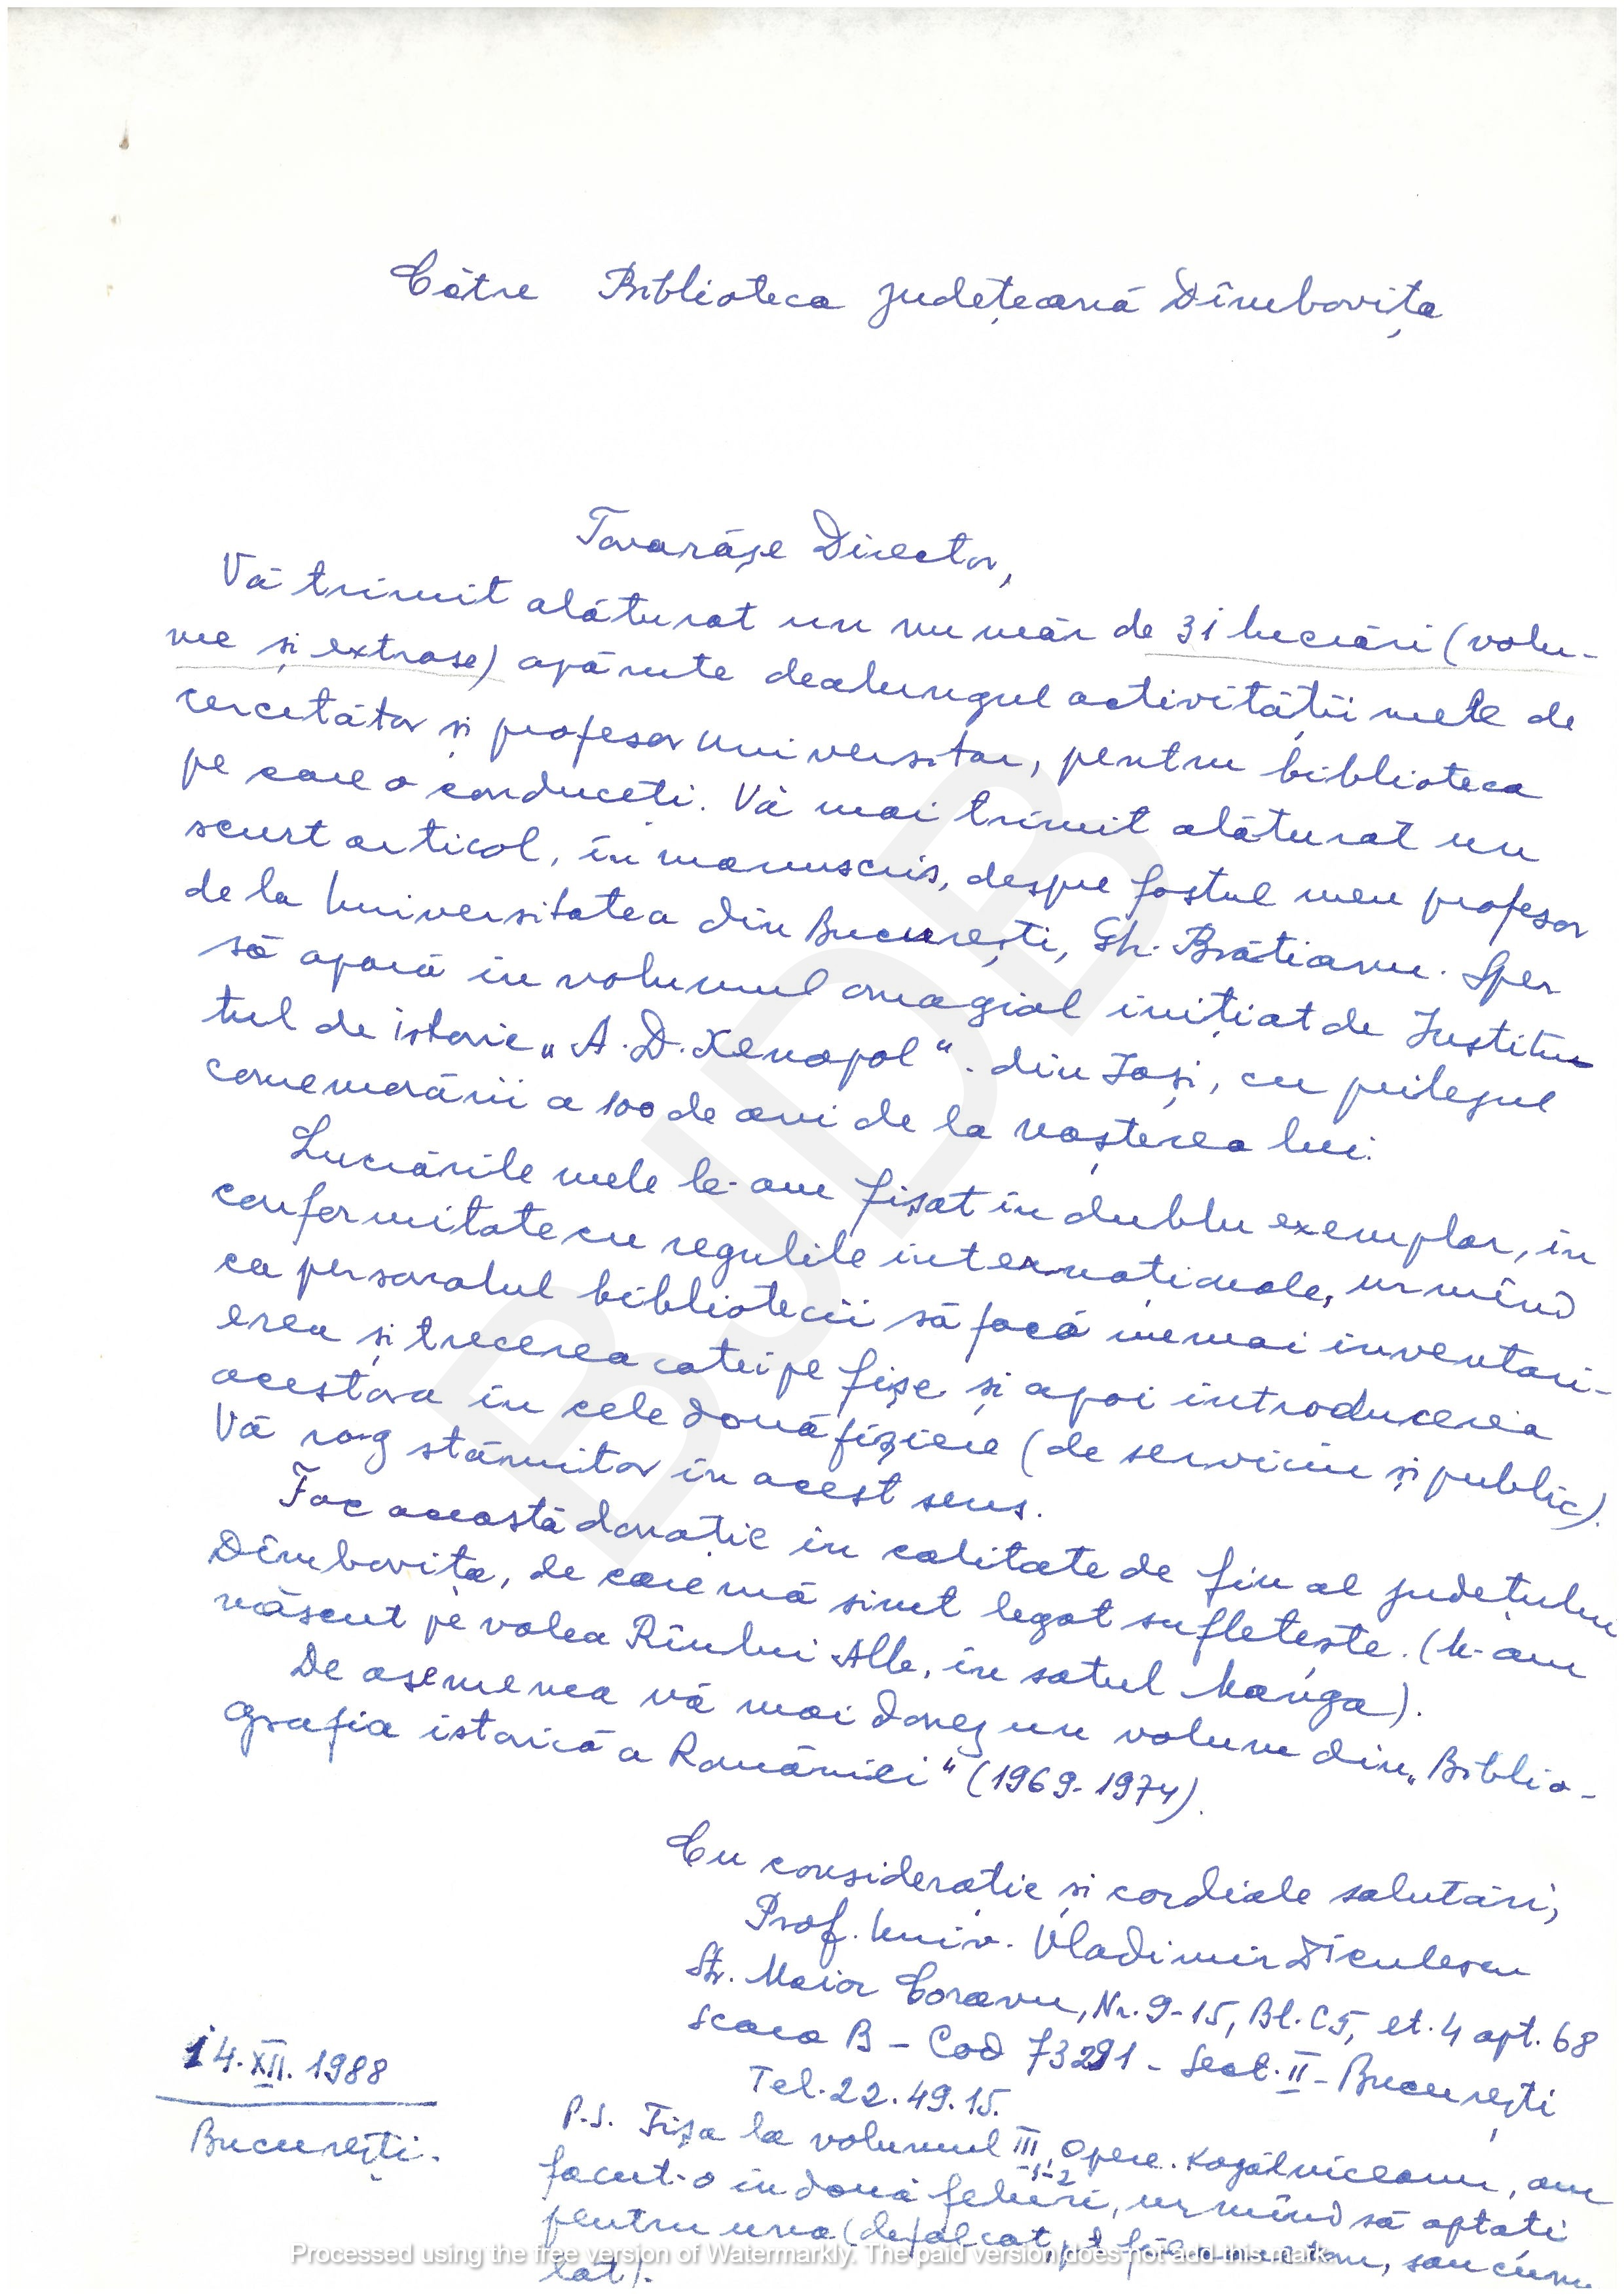 Către Biblioteca județeană Dîmbovița
Tovarășe Director,
Vă trimit alăturat un număr de 31 lucrări (volu-
me și extrase) apărute dealungul activității mele de
cercetător și profesor universitar, pentru biblioteca
pe care o conduceți. Vă mai trimit alăturat un
scurt articol, în manuscris, despre fostul meu profesor
de la Universitatea din București, Gh. Brătianu. Sper
să apară în volumul omagial inițiat de Institu-
tul de istorie „A. D. Xenopol“ din Iași, cu prilejul
comemorării a 100 de ani de la nașterea lui.
Lucrările mele le-am fișat în dublu exemplar, în
conformitate cu regulile internaționale, urmînd
ca personalul bibliotecii să facă numai inventari-
erea și trecerea cotei pe fișe și apoi introducerea
acestora în cele două fișiere (de serviciu și public).
Vă rog stăruitor în acest sens.
Fac această donație în calitate de fiu al județului
Dîmbovița, de care mă simt legat sufletește. (M-am
născut pe valea Rîului Alb, în satul Manga).
De asemenea vă mai donez un volum din „Biblio-
grafia istorică a României“ (1969-1974).
Cu considerație și cordiale salutări,
Prof. Univ. Vladimir Diculescu
Str. Maior Coravu, Nr. 9-15, Bl. C5, et. 4 apt. 68
Scara B - Cod 73291 - Sect. II - București
Tel. 22.49.15.
14.XII.1988
București.
P.S. Fișa la volumul III, Opere. Kogălniceanu, am
-1-2
facut-o în două feluri, urmînd să optați
pentru una (defalcat, pt. fiecare tom, sau cumu-
lat).
BJDB
Processed using the free version of Watermarkly. The paid version does not add this mark.